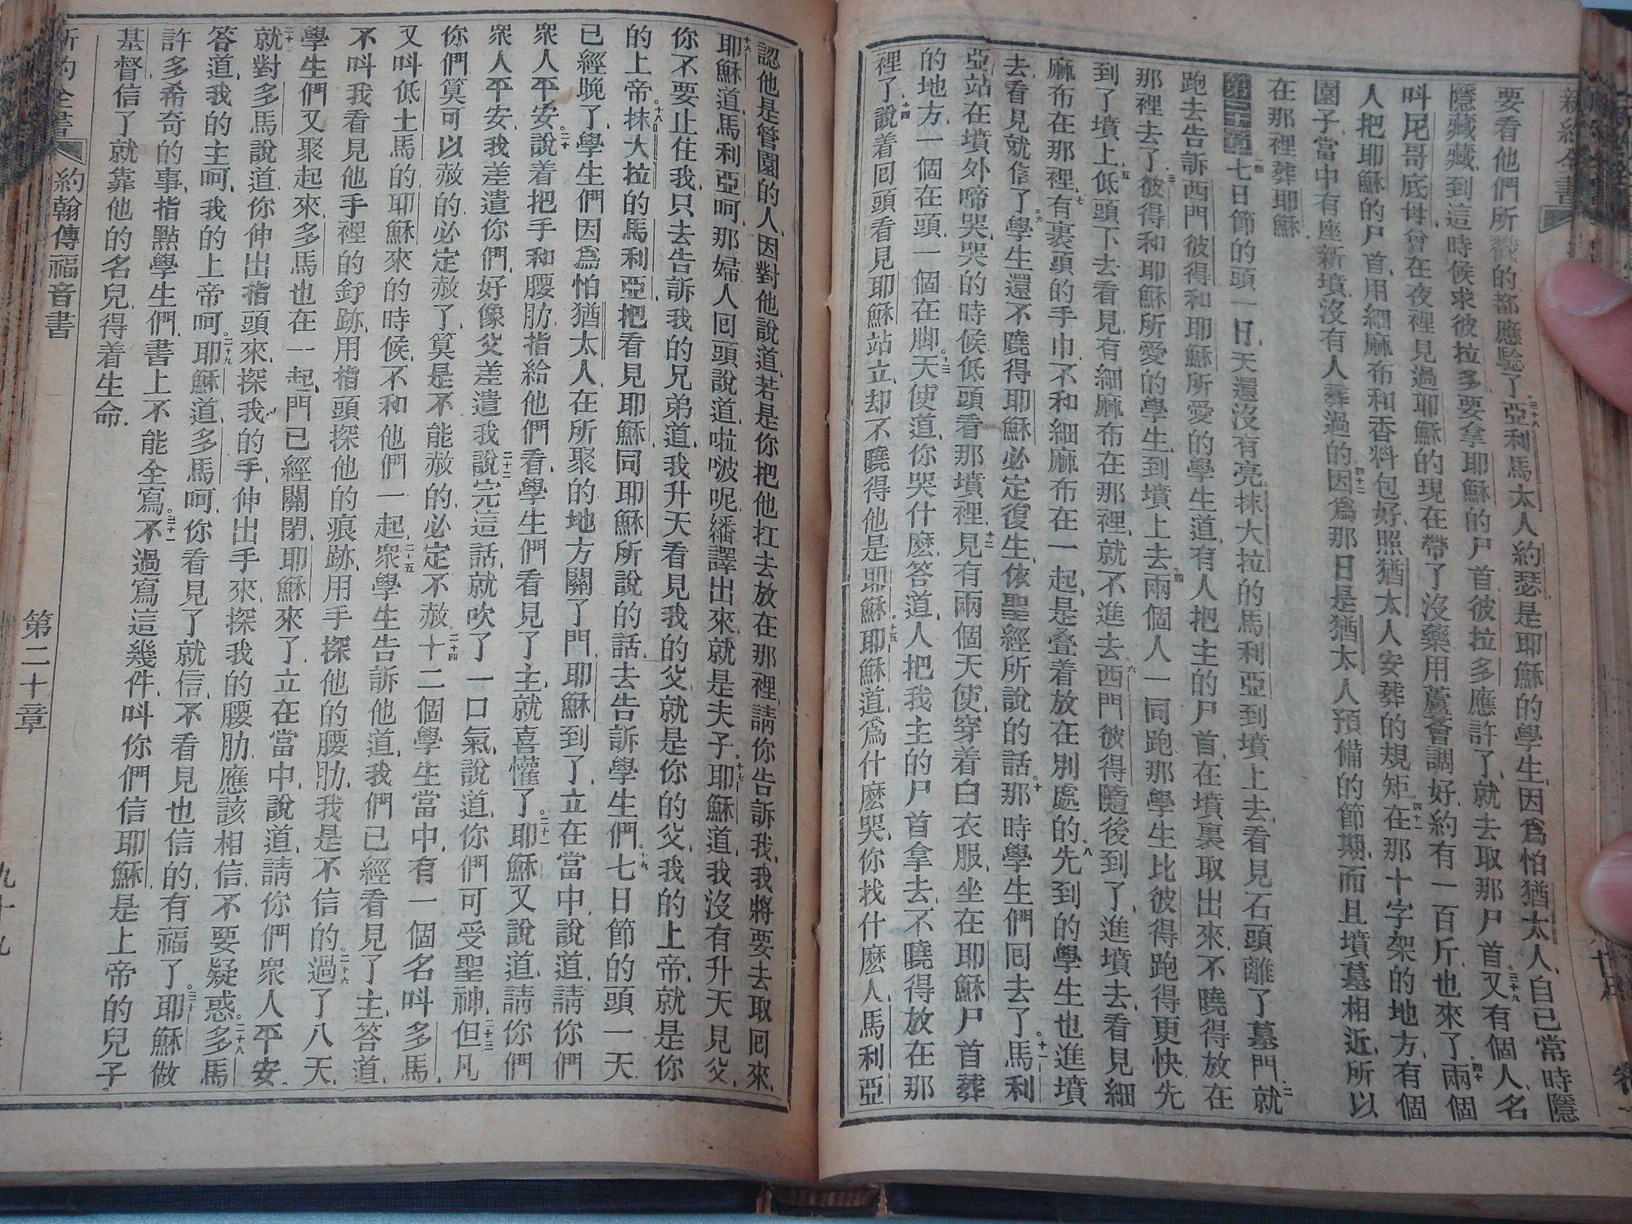 新約全書
要看他們所戳的都應驗了三十八亞利馬太人約瑟是耶穌的學生因爲怕猶太人自己當時隱
隱藏藏到這時候求彼拉多要拿耶穌的尸首彼拉多應許了就去取那尸首三十九又有個人名
叫尼哥底母曾在夜裡見過耶穌的現在帶了沒藥用蘆薈調好約有一百斤也來了四十兩個
人把耶穌的尸首用細麻布和香料包好照猶太人安葬的規矩四十一在那十字架的地方有個
園子當中有座新墳沒有人葬過的四十二因爲那日是猶太人預備的節期而且墳墓相近所以
在那裡葬耶穌
第二十章七日節的頭一日天還沒有亮抹大拉的馬利亞到墳上去看見石頭離了墓門二就
跑去告訴西門彼得和耶穌所愛的學生道有人把主的尸首在墳裏取出來不曉得放在
那裡去了三彼得和耶穌所愛的學生到墳上去四兩個人一同跑那學生比彼得跑得更快先
到了墳上五低頭下去看見有細麻布在那裡就不進去六西門彼得隨後到了進墳去看見細
麻布在那裡七有裹頭的手巾不和細麻布在一起是叠着放在別處的八先到的學生也進墳
去看見就信了九學生還不曉得耶穌必定復生依聖經所說的話十那時學生們回去了十一馬利
亞站在墳外啼哭哭的時候低頭看那墳裡十二見有兩個天使穿着白衣服坐在耶穌尸首葬
的地方一個在頭一個在脚十三天使道你哭什麼答道人把我主的尸首拿去不曉得放在那
裡了十四說着回頭看見耶穌站立却不曉得他是耶穌十五耶穌道爲什麼哭你找什麼人馬利亞
認他是管園的人因對他說道若是你把他扛去放在那裡請你告訴我我將要去取回來
十六耶穌道馬利亞呵那婦人回頭說道啦啵呢繙譯出來就是夫子十七耶穌道我沒有升天見父
你不要止住我只去告訴我的兄弟道我升天看見我的父就是你的父我的上帝就是你
的上帝十八抹大拉的馬利亞把看見耶穌同耶穌所說的話去告訴學生們十九七日節的頭一天
已經晚了學生們因爲怕猶太人在所聚的地方關了門耶穌到了立在當中說道請你們
衆人平安二十說着把手和腰肋指給他們看學生們看見了主就喜懽了二十一耶穌又說道請你們
衆人平安我差遣你們好像父差遣我二十二說完這話就吹了一口氣說道你們可受聖神二十三但凡
你們算可以赦的必定赦了算是不能赦的必定不赦二十四十二個學生當中有一個名叫多馬
又叫低土馬的耶穌來的時候不和他們一起二十五衆學生告訴他道我們已經看見了主答道
不叫我看見他手裡的釘跡用指頭探他的痕跡用手探他的腰肋我是不信的二十六過了八天
學生們又聚起來多馬也在一起門已經關閉耶穌來了立在當中說道請你們衆人平安
二十七就對多馬說道你伸出指頭來探我的手伸出手來探我的腰肋應該相信不要疑惑二十八多馬
答道我的主呵我的上帝呵二十九耶穌道多馬呵你看見了就信不看見也信的有福了三十耶穌做
許多希奇的事指點學生們書上不能全寫三十一不過寫這幾件叫你們信耶穌是上帝的兒子
基督信了就靠他的名兒得着生命
新約全書 約翰傳福音書 第二十章 九十九